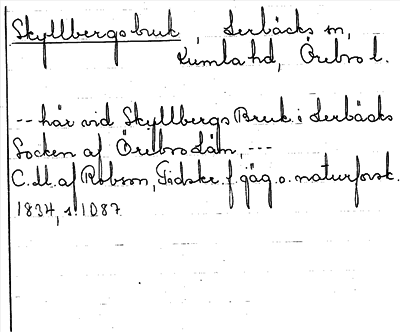 Skyllbergs bruk, Lerbäcks sn,
Kumla hd, Örebro l.
-- här vid Skyllbergs Bruk i Lerbäcks
Socken af Örebro Län, ---
C.U. af Robson, Tidskr. f. jäg. o. naturforsk.
1834, s. 1087